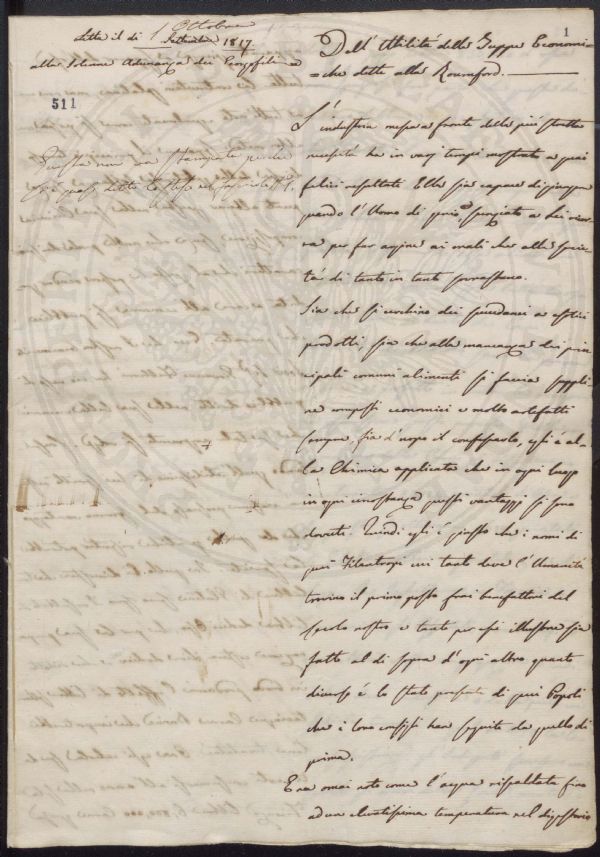 Letta il dì 1 Ottobre
Settembre 1817
alla Solenne Adunanza dei Georgofili
511
1
Dell'Utilità delle Zuppe Economi-
che dette alla Roumford.
Questa non va stampata perche
L'industria messa a fronte delle più strette
necessità ha in varj tempi mostrato a quai
felici resultati Ella sia capace di giungere
quando l'Uomo di
per far argine ai mali che alla Socie-
tà di tanto in tanto sovrastano.
Sia che si cerchino dei succedanei a esotici
prodotti, sia che alla mancanza dei prin-
cipali comuni alimenti si faccia suppli-
re composti economici e molto artefatti
sempre, fia d'uopo il confessarlo, egli è al-
la Chimica applicata che in ogni luogo
in ogni circostanza questi vantaggi si sono
dovuti. Quindi egli è giusto che i nomi di
quei Filantropi cui tanto deve l'Umanità
trovino il primo posto frai benefattori del
secolo nostro e tanto per essi illustre sia
fatto al di sopra d'ogni altro quanto
diverso è lo stato presente di quei Popoli
che i loro consigli han seguito da quello di
prima.
Era omai noto come l'acqua riscaldata fino
ad una elevatissima temperatura nel digestorio